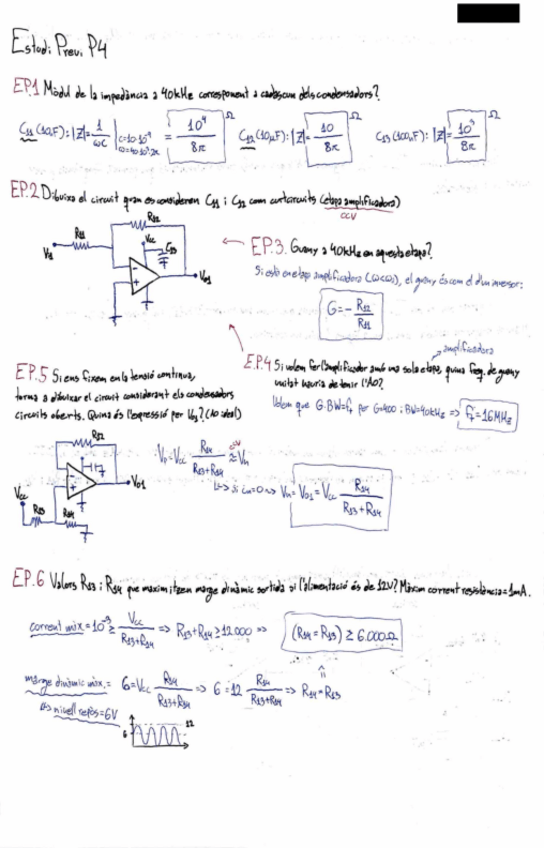 Estudi Previ P4
EP.1 Mòdul de la impedància a 40kHz corresponent a cadascun dels condensadors?
C₁₁ (10nF): |Z| = 1/ωC | C=10·10⁻⁹ ω=40·10³·2π = 10⁴/8π Ω C₁₂ (10μF): |Z| = 10/8π Ω C₁₃ (100nF): |Z| = 10³/8π Ω
EP.2 Dibuixa el circuit quan es consideren C₁₁ i C₁₂ com curtcircuits (etapa amplificadora)
CCV
R₁₂
R₁₁
Vcc
C₁₃
V₁
V₀₁
EP.3. Guany a 40kHz en aquesta etapa?
Si està en etapa amplificadora (ω<ω₁), el guany és com el d'un inversor:
G = - R₁₂/R₁₁
amplificadora
EP.4 Si volem fer l'amplificador amb una sola etapa, quina freq. de guany
unitat hauria de tenir l'AO?
Volem que G·BW=fₜ per G=400 i BW=40kHz => fₜ=16MHz
EP.5 Si ens fixem en la tensió contínua,
torna a dibuixar el circuit considerant els condensadors
circuits oberts. Quina és l'expressió per V₀₁? (AO ideal)
R₁₂
V₀₁
Vcc
R₁₃
R₁₄
Vₚ=Vcc R₁₄/R₁₃+R₁₄ ccv ≈ Vₙ
↳ si iₙ=0 => Vₙ = V₀₁ = Vcc R₁₄/R₁₃+R₁₄
EP.6 Valors R₁₃ i R₁₄ que maximitzen marge dinàmic sortida si l'alimentació és de 12V? Màxim corrent resistència=1mA.
corrent màx = 10⁻³ ≥ Vcc/R₁₃+R₁₄ => R₁₃+R₁₄ ≥ 12.000 => (R₁₄=R₁₃) ≥ 6.000Ω
marge dinàmic màx. = 6=Vcc R₁₄/R₁₃+R₁₄ => 6=12 R₁₄/R₁₃+R₁₄ => R₁₄=R₁₃
↳ nivell repòs=6V
12
6